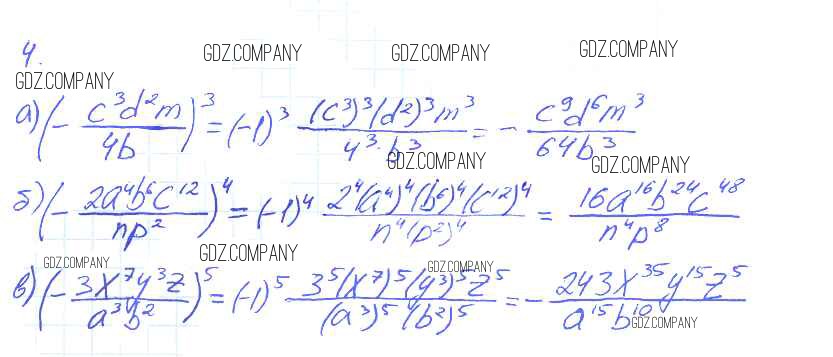 4.
GDZ.COMPANY GDZ.COMPANY GDZ.COMPANY
GDZ.COMPANY
а) (- c³d²m / 4b)³ = (-1)³ (c³)³(d²)³m³ / 4³·b³ = - c⁹d⁶m³ / 64b³
GDZ.COMPANY GDZ.COMPANY
б) (- 2a⁴b⁶c¹² / np²)⁴ = (-1)⁴ 2⁴(a⁴)⁴(b⁶)⁴(c¹²)⁴ / n⁴(p²)⁴ = 16a¹⁶b²⁴c⁴⁸ / n⁴p⁸
GDZ.COMPANY GDZ.COMPANY GDZ.COMPANY
в) (- 3x⁷y³z / a³b²)⁵ = (-1)⁵ 3⁵(x⁷)⁵(y³)⁵z⁵ / (a³)⁵(b²)⁵ = - 243x³⁵y¹⁵z⁵ / a¹⁵b¹⁰
GDZ.COMPANY